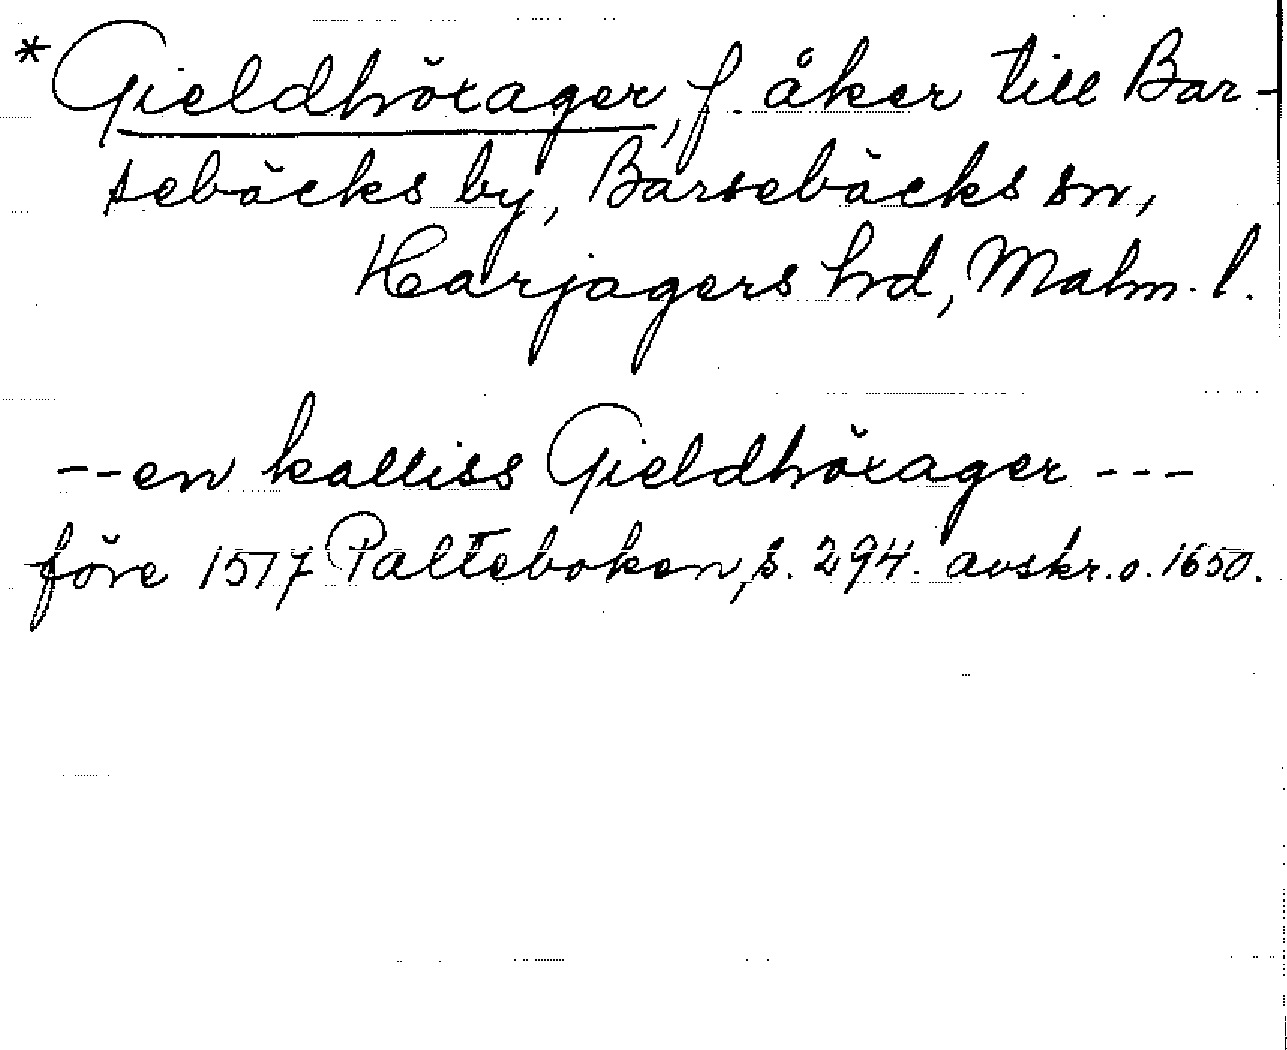 *Gieldhöxager, f. åker till Bar-
sebäcks by, Barsebäcks sn,
Harjagers hd, Malm. l.
--en kalliss Gieldhöxager ---
före 1517 Palteboken, s. 294. avskr. o. 1650.